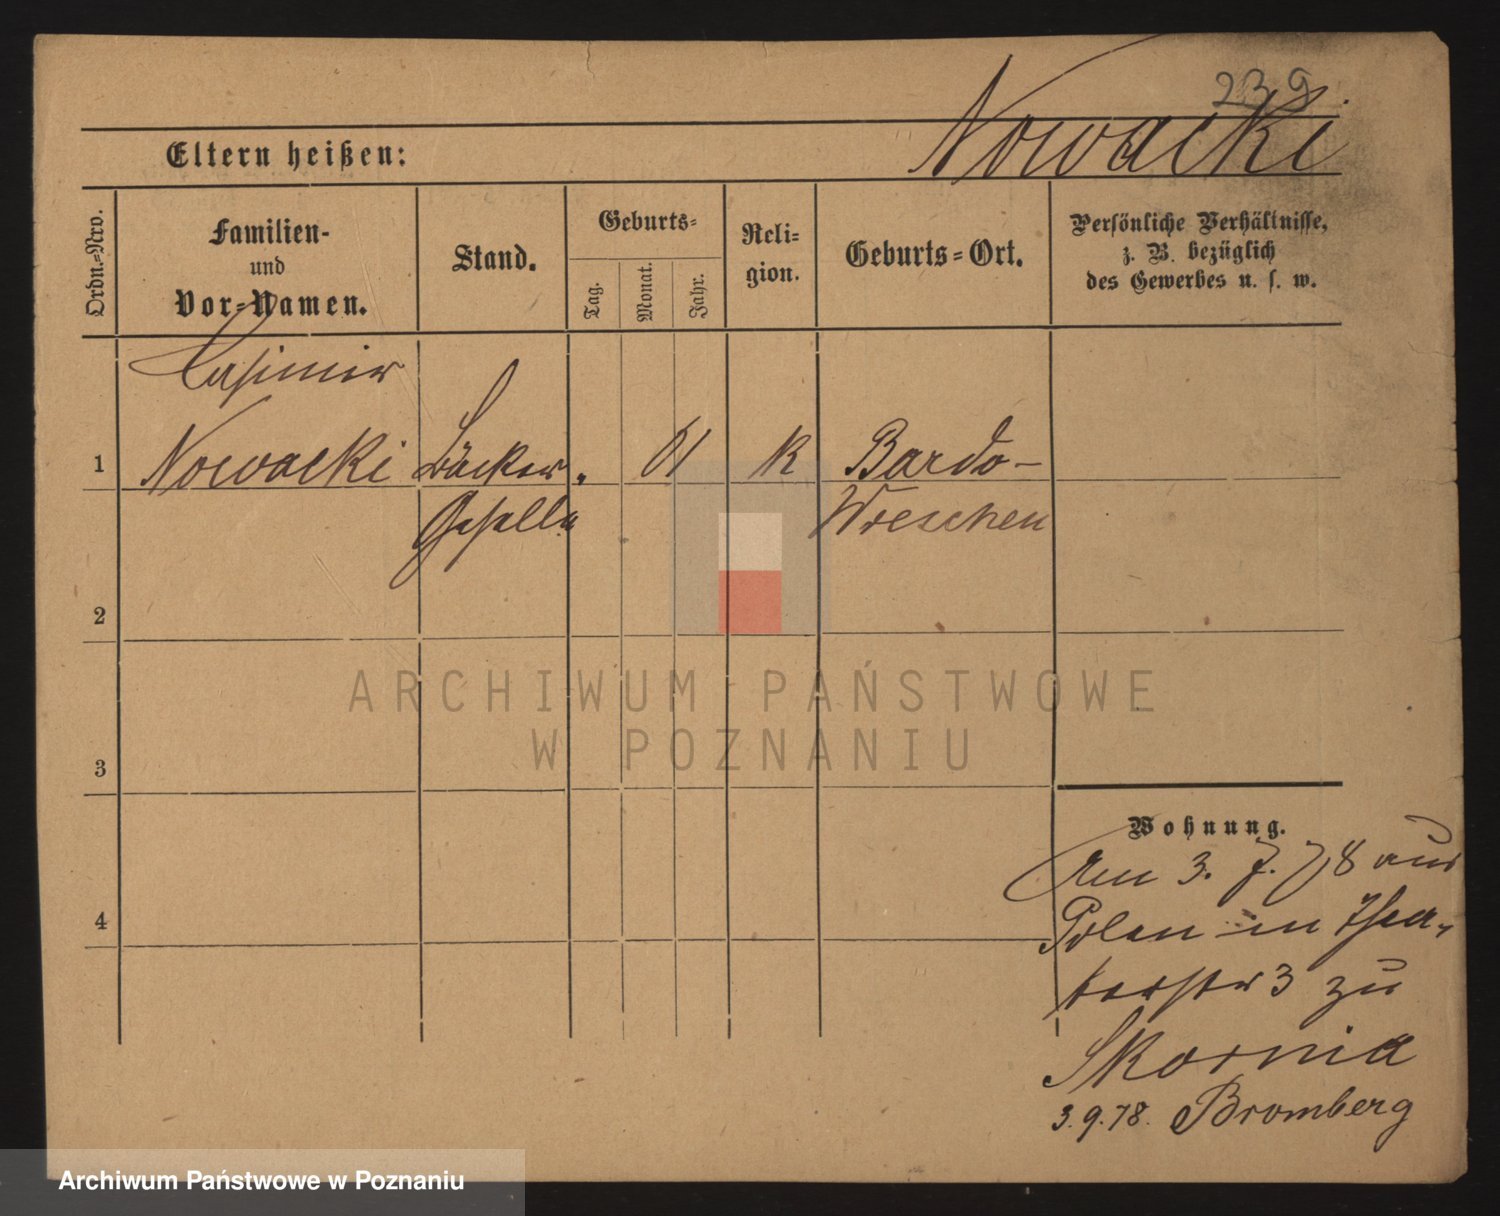 239
Nowacki
Eltern heißen:
Ordn.-Nro.
Familien-
und
Vor-Namen.
Stand.
Geburts-
Tag.
Monat.
Jahr.
Reli-
gion.
Geburts-Ort.
Persönliche Verhältnisse,
z. B. bezüglich
des Gewerbes u. s. w.
Casimir
1 Nowacki Bäcker- 61 K Bardo-
Geselle Wreschen
2
3
4
Wohnung.
Am 3. 7. 78 aus
Polen in Thea-
terstr 3 zu
Skornia
3.9.78. Bromberg
ARCHIWUM PAŃSTWOWE
W POZNANIU
Archiwum Państwowe w Poznaniu